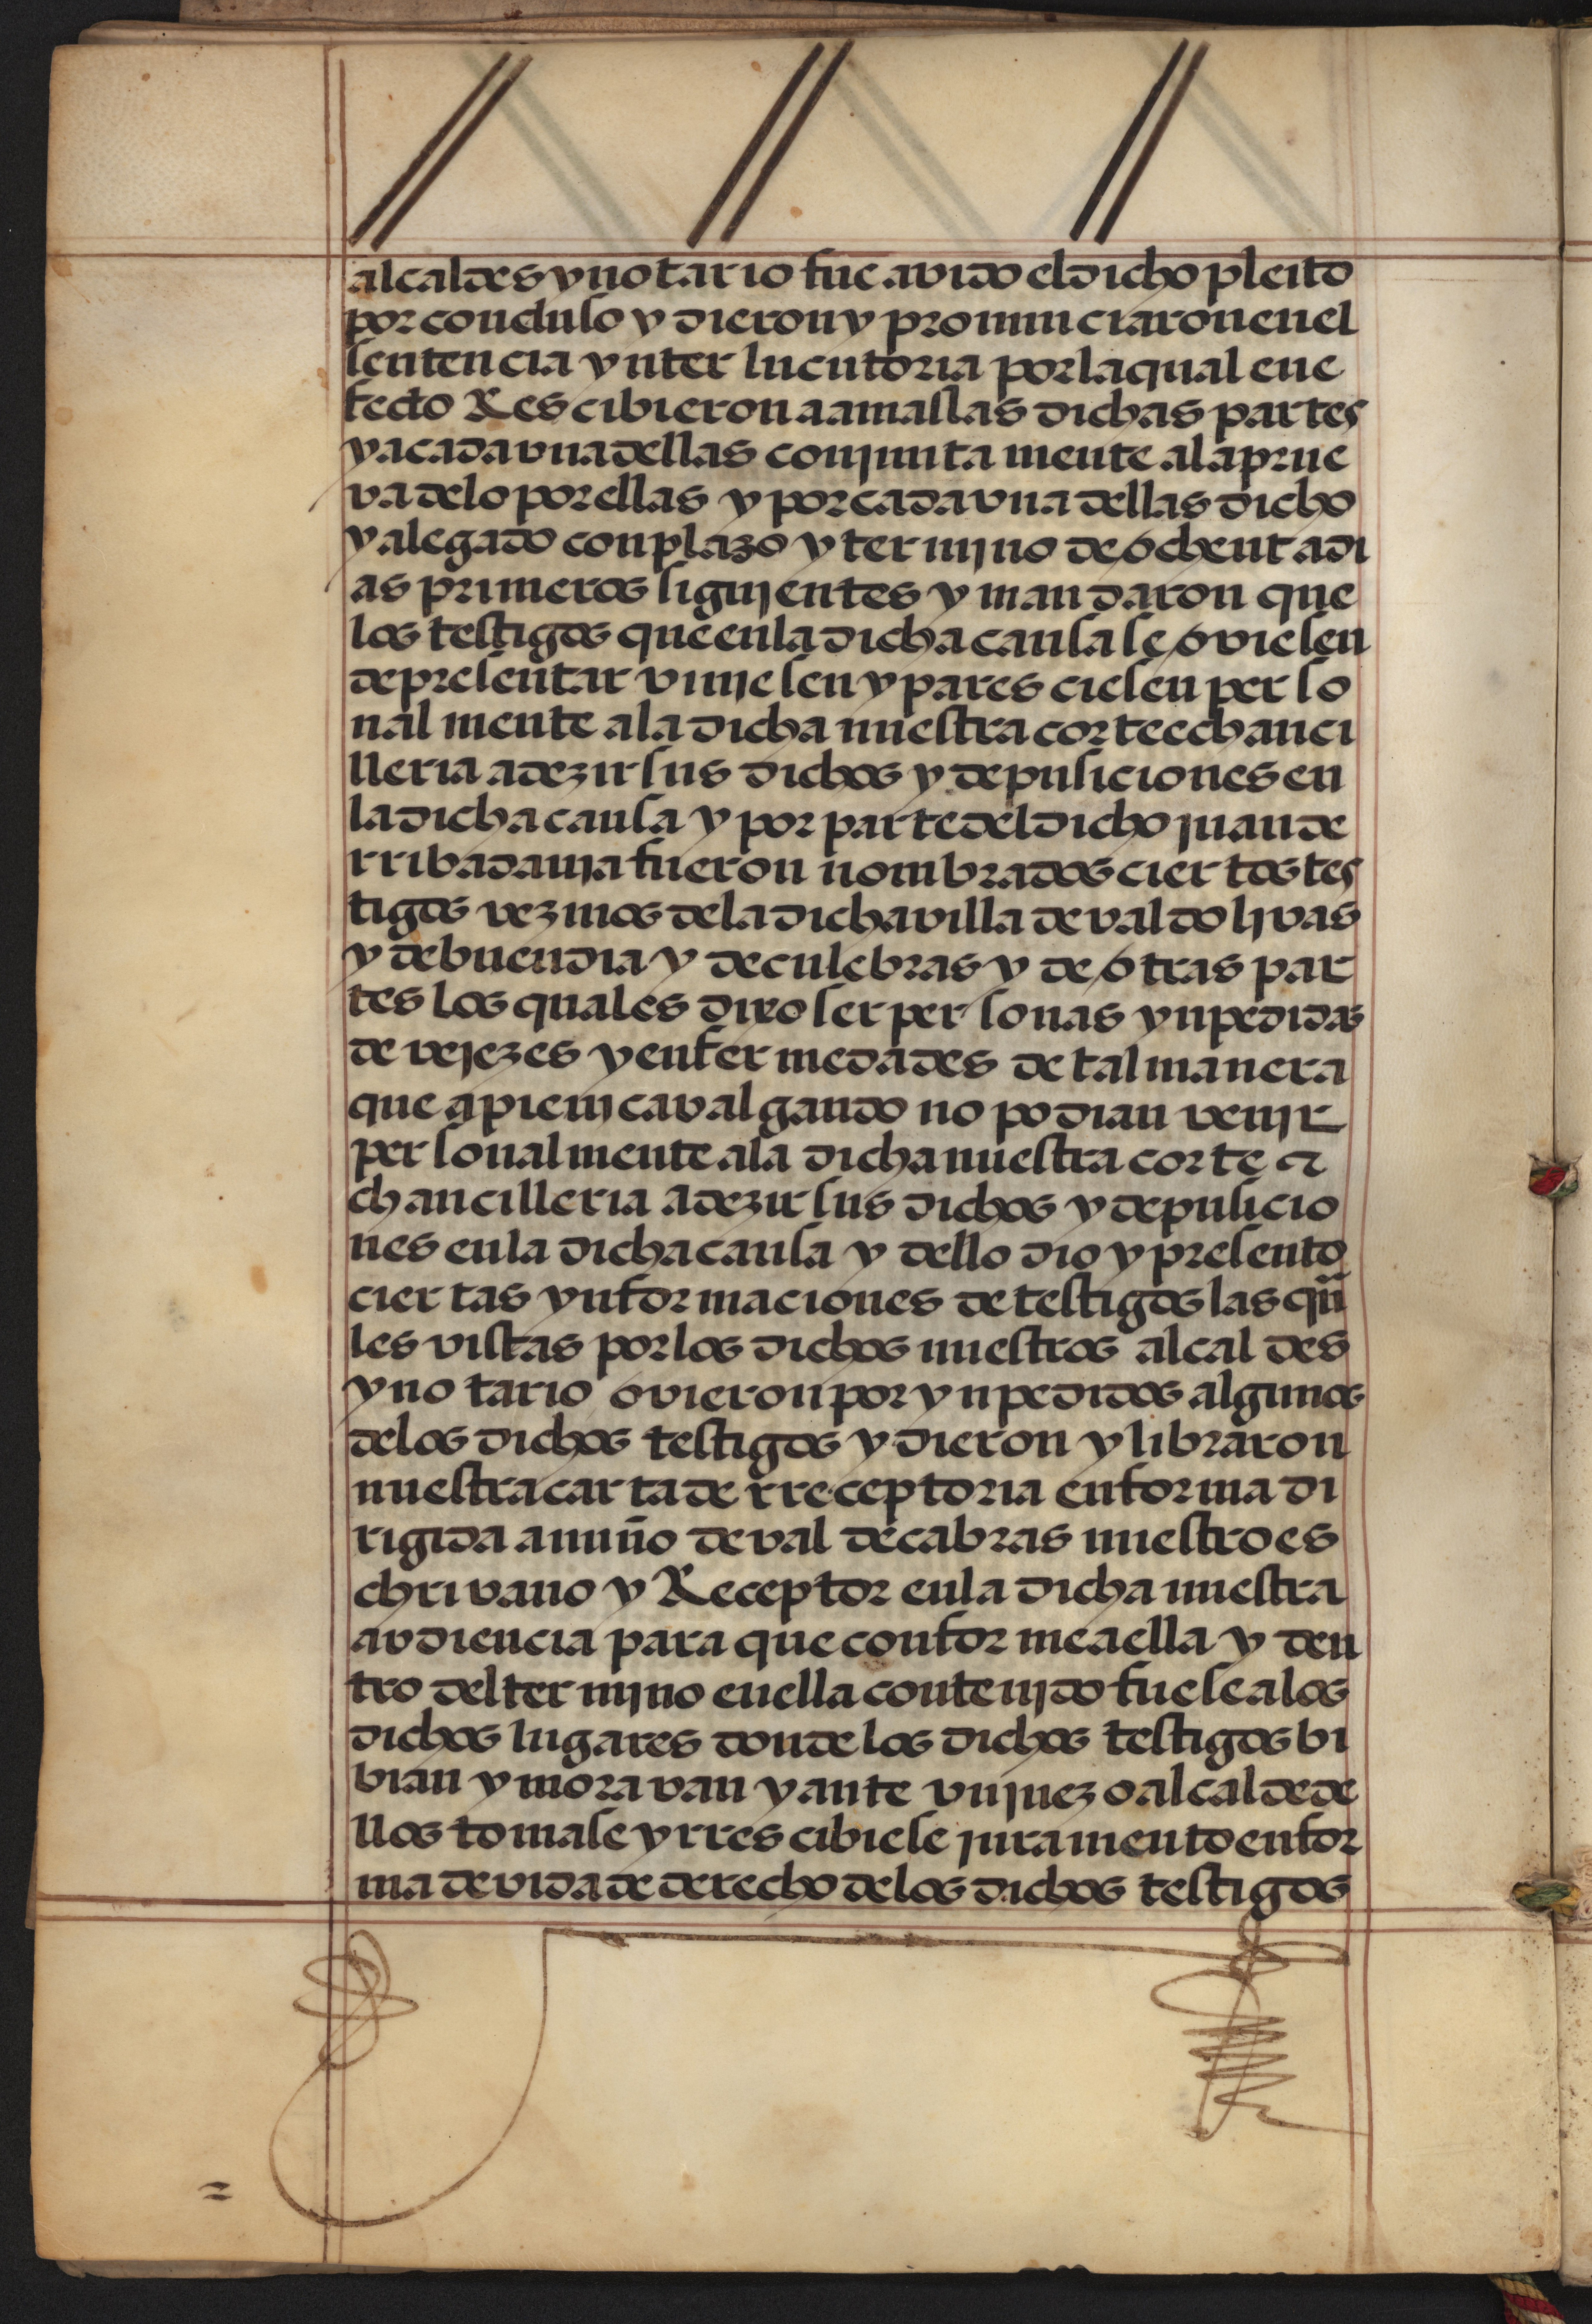 alcaldes y notario fue avido el dicho pleito
por concluso y dieron y pronunciaron en el
sentencia ynterlucutoria por la qual en e
fecto Rescibieron a amas las dichas partes
y a cada vna dellas conjuntamente a la prue
va de lo por ellas y por cada vna dellas dicho
y alegado con plazo y termjno de ochenta di
as primeros sigujentes y mandaron que
los testigos que en la dicha causa se oviesen
de presentar vinjesen y paresciesen perso
nalmente a la dicha nuestra corte e chanci
lleria a dezir sus dichos y depusiciones en
la dicha causa y por parte del dicho juan de
rribadauja fueron nombrados ciertos tes
tigos vezinos de la dicha villa de valdoljvas
y de buendia y de culebras y de otras par
tes los quales dixo ser personas ynpedidas
de vejezes y enfermedades de tal manera
que a pie nj cavalgando no podian venjr
personalmente a la dicha nuestra corte e
chancilleria a dezir sus dichos y depusicio
nes en la dicha causa y dello dio y presento
ciertas ynformaciones de testigos las qua
les vistas por los dichos nuestros alcaldes
y notario ovieron por ynpedidos algunos
de los dichos testigos y dieron y libraron
nuestra carta de rreceptoria en forma di
rigida a nuño de val de cabras nuestro es
chrivano y Receptor en la dicha nuestra
avdiencia para que conforme a ella y den
tro del termjno en ella contenjdo fuese a los
dichos lugares donde los dichos testigos bi
bian y moravan y ante vn juez o alcalde de
llos tomase y rrescibiese juramento en for
ma devida de derecho de los dichos testigos